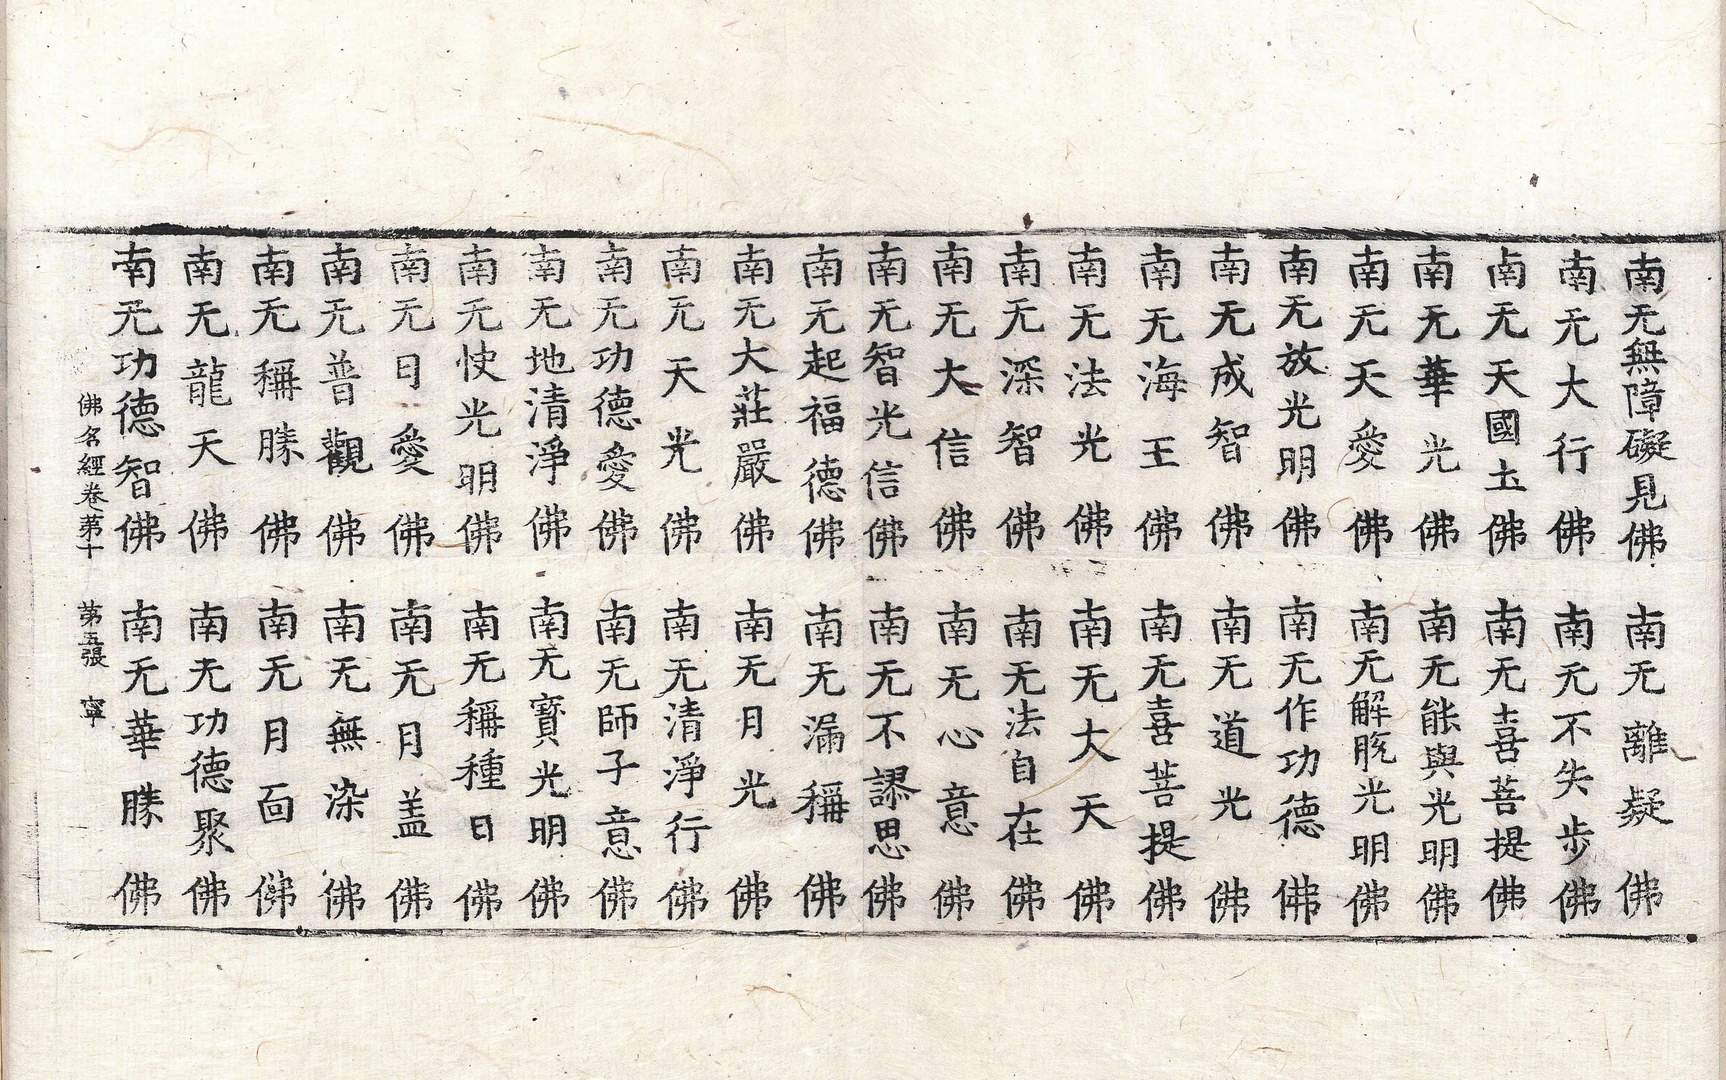 南无無障礙見佛 南无離疑佛
南无大行佛 南无不失步佛
南无天國土佛 南无喜菩提佛
南无華光佛 南无能與光明佛
南无天愛佛 南无解脱光明佛
南无放光明佛 南无作功德佛
南无成智佛 南无道光佛
南无海王佛 南无喜菩提佛
南无法光佛 南无大天佛
南无深智佛 南无法自在佛
南无大信佛 南无心意佛
南无智光信佛 南无不謬思佛
南无起福德佛 南无漏稱佛
南无大莊嚴佛 南无月光佛
南无天光佛 南无清淨行佛
南无功德愛佛 南无師子意佛
南无地清淨佛 南无寳光明佛
南无快光明佛 南无稱種日佛
南无日愛佛 南无月盖佛
南无普觀佛 南无無染佛
南无稱勝佛 南无月面佛
南无龍天佛 南无功德聚佛
南无功德智佛 南无華勝佛
佛名經卷苐十 苐五張 寧